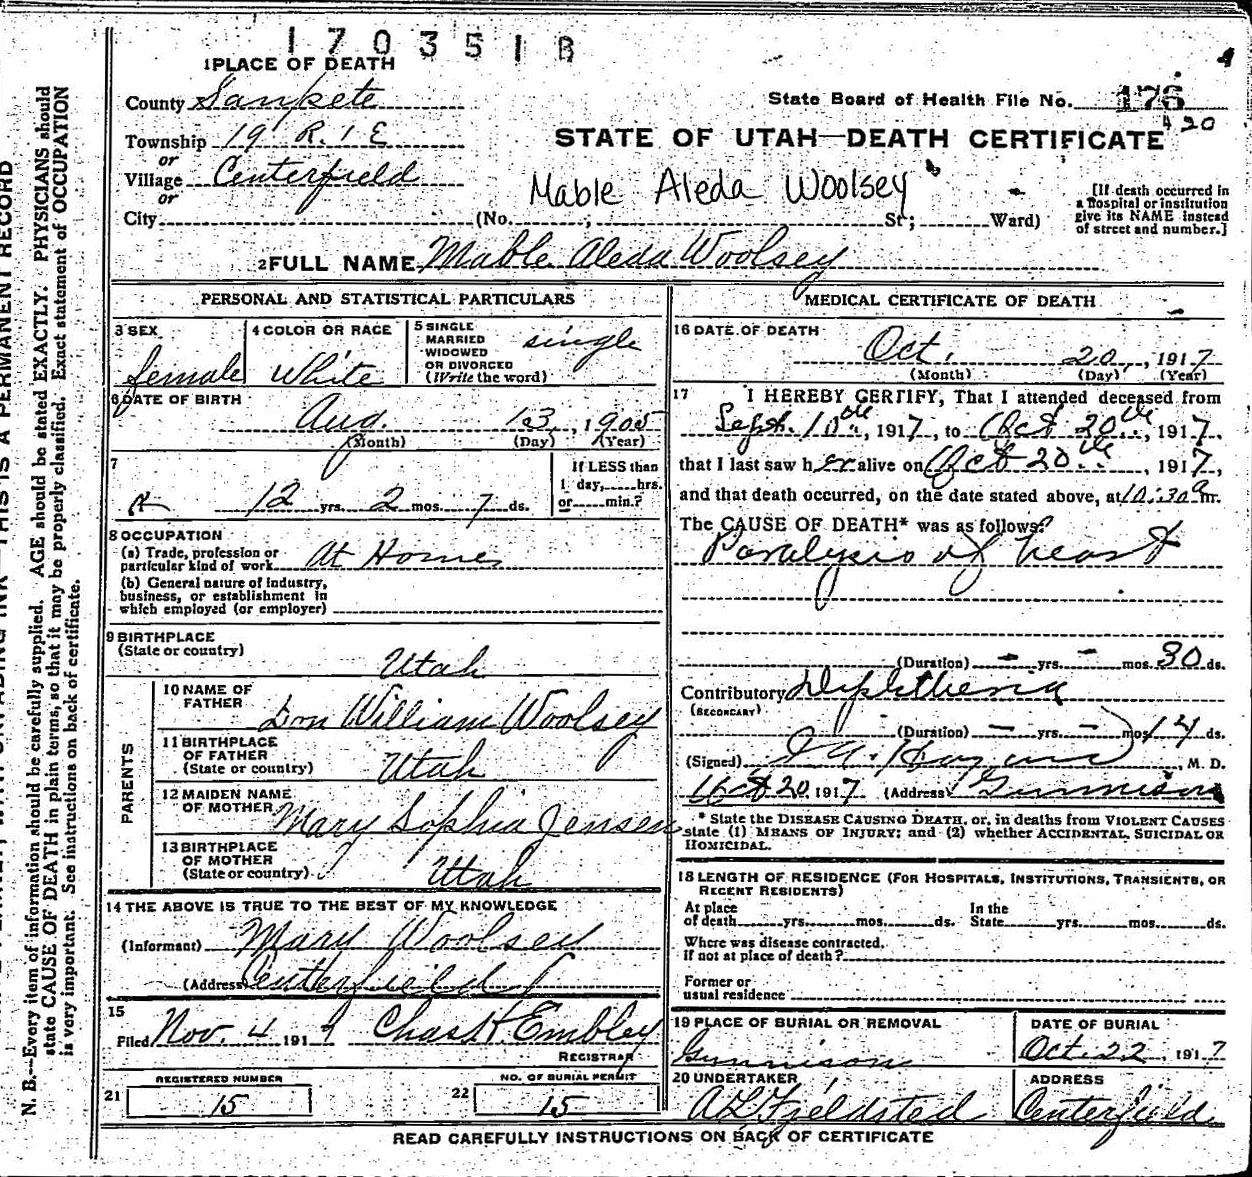 170351B
1 PLACE OF DEATH
County Sanpete
State Board of Health File No. 176
420
Township 19 R. 1 E
STATE OF UTAH—DEATH CERTIFICATE
or
Village Centerfield
or
Mable Aleda Woolsey
[If death occurred in
a hospital or institution
give its NAME instead
of street and number.]
City (No. ; St; Ward)
2 FULL NAME Mable Aleda Woolsey
PERSONAL AND STATISTICAL PARTICULARS
3 SEX
female
4 COLOR OR RACE
White
5 SINGLE
MARRIED
WIDOWED
OR DIVORCED
(Write the word)
single
6 DATE OF BIRTH
Aug. 13, 1905
(Month) (Day) (Year)
7
If LESS than
1 day, hrs.
or min.?
12 yrs. 2 mos. 7 ds.
8 OCCUPATION
(a) Trade, profession or
particular kind of work At Home
(b) General nature of industry,
business, or establishment in
which employed (or employer)
9 BIRTHPLACE
(State or country)
Utah
PARENTS
10 NAME OF
FATHER
Don William Woolsey
11 BIRTHPLACE
OF FATHER
(State or country)
Utah
12 MAIDEN NAME
OF MOTHER
Mary Sophia Jensen
13 BIRTHPLACE
OF MOTHER
(State or country)
Utah
14 THE ABOVE IS TRUE TO THE BEST OF MY KNOWLEDGE
(Informant) Mary Woolsey
(Address Centerfield
15
Filed Nov. 4 1917 Chas. H. Embley
REGISTRAR
REGISTERED NUMBER
21 15
NO. OF BURIAL PERMIT
22 15
MEDICAL CERTIFICATE OF DEATH
16 DATE OF DEATH
Oct. 20, 1917
(Month) (Day) (Year)
17 I HEREBY CERTIFY, That I attended deceased from
Sept. 10th, 1917, to Oct 20th, 1917,
that I last saw her alive on Oct 20th, 1917,
and that death occurred, on the date stated above, at 10:30a m.
The CAUSE OF DEATH* was as follows:
Paralysis of heart
(Duration) – yrs. – mos. 30 ds.
Contributory Diphtheria
(SECONDARY)
(Duration) – yrs. – mos. 14 ds.
(Signed) , M. D.
Oct 20, 1917 (Address) Gunnison
* State the DISEASE CAUSING DEATH, or, in deaths from VIOLENT CAUSES
state (1) MEANS OF INJURY; and (2) whether ACCIDENTAL, SUICIDAL OR
HOMICIDAL.
18 LENGTH OF RESIDENCE (FOR HOSPITALS, INSTITUTIONS, TRANSIENTS, OR
RECENT RESIDENTS)
At place
of death yrs. mos. ds.
In the
State yrs. mos. ds.
Where was disease contracted,
if not at place of death?
Former or
usual residence
19 PLACE OF BURIAL OR REMOVAL
Gunnison
DATE OF BURIAL
Oct. 22, 1917
20 UNDERTAKER
A L Fjeldsted
ADDRESS
Centerfield
READ CAREFULLY INSTRUCTIONS ON BACK OF CERTIFICATE
THIS IS A PERMANENT RECORD
N. B.—Every item of information should be carefully supplied. AGE should be stated EXACTLY. PHYSICIANS should
state CAUSE OF DEATH in plain terms, so that it may be properly classified. Exact statement of OCCUPATION
is very important. See instructions on back of certificate.